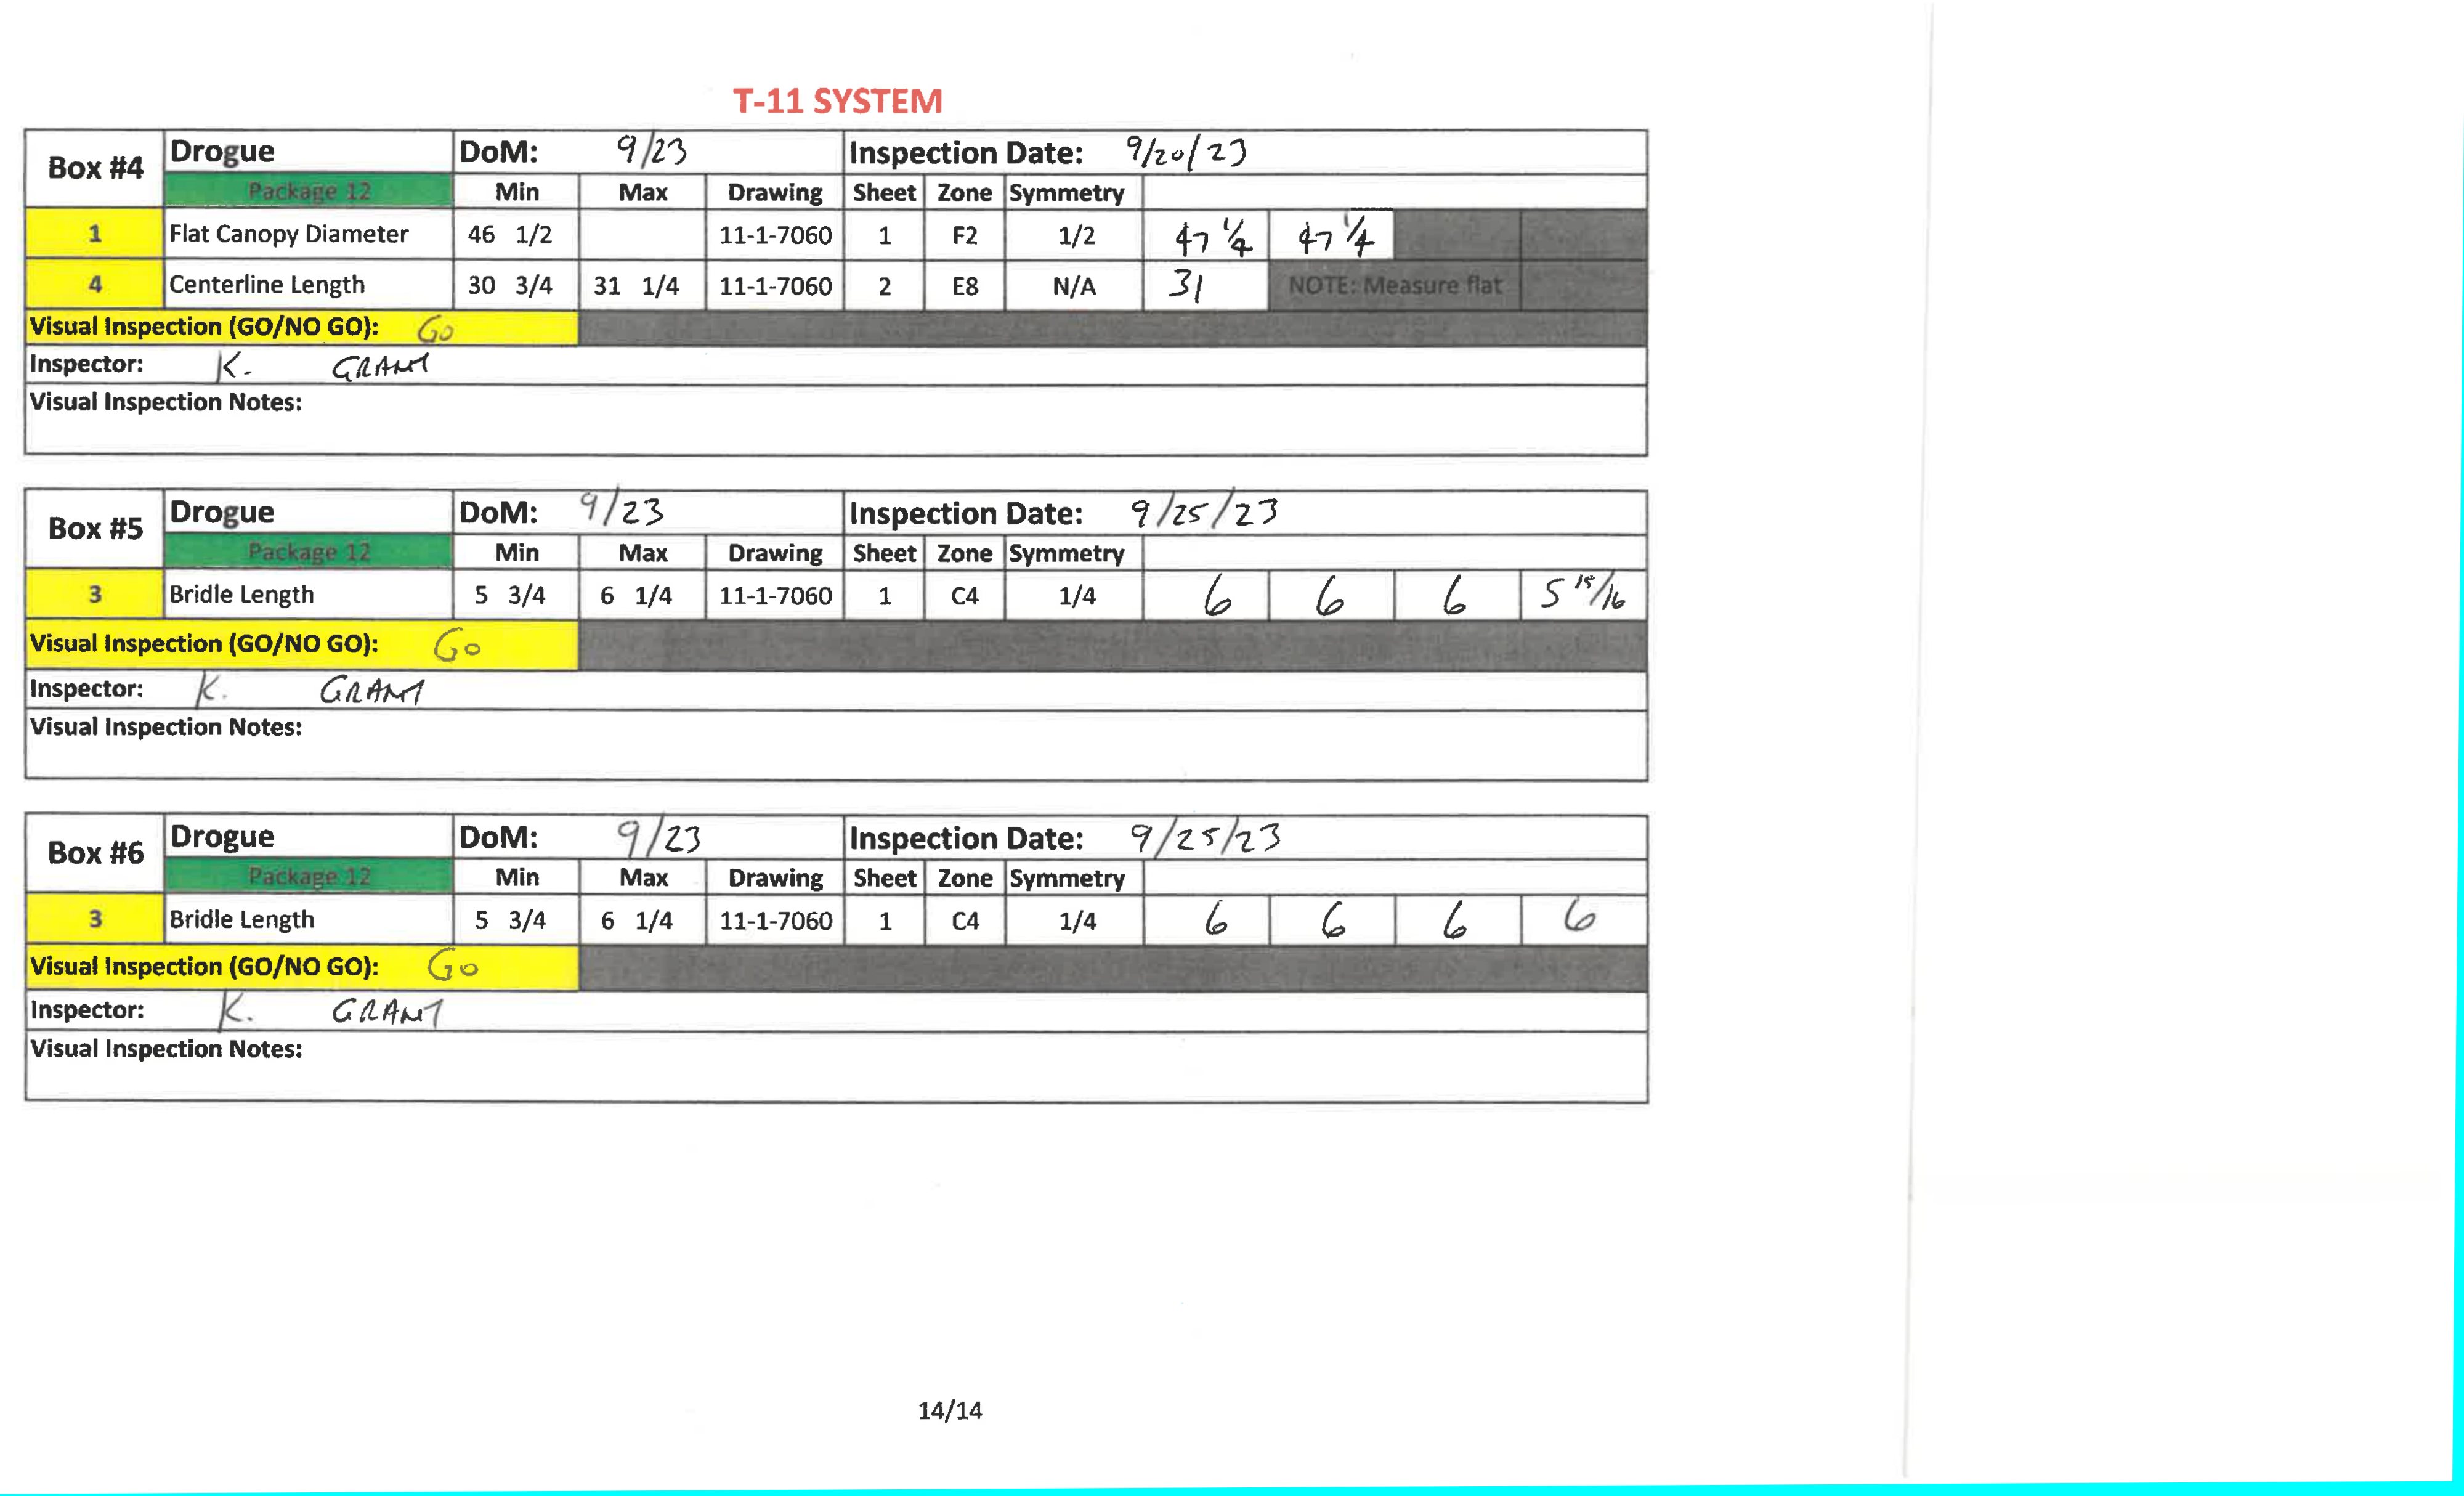 T-11 SYSTEM
Box #4 Drogue DoM: 9/23 Inspection Date: 9/20/23
Package 12 Min Max Drawing Sheet Zone Symmetry
1 Flat Canopy Diameter 46 1/2 11-1-7060 1 F2 1/2 47 1/4 47 1/4
4 Centerline Length 30 3/4 31 1/4 11-1-7060 2 E8 N/A 31 NOTE: Measure flat
Visual Inspection (GO/NO GO): Go
Inspector: K. GRANT
Visual Inspection Notes:
Box #5 Drogue DoM: 9/23 Inspection Date: 9/25/23
Package 12 Min Max Drawing Sheet Zone Symmetry
3 Bridle Length 5 3/4 6 1/4 11-1-7060 1 C4 1/4 6 6 6 5 15/16
Visual Inspection (GO/NO GO): Go
Inspector: K. GRANT
Visual Inspection Notes:
Box #6 Drogue DoM: 9/23 Inspection Date: 9/25/23
Package 12 Min Max Drawing Sheet Zone Symmetry
3 Bridle Length 5 3/4 6 1/4 11-1-7060 1 C4 1/4 6 6 6 6
Visual Inspection (GO/NO GO): Go
Inspector: K. GRANT
Visual Inspection Notes:
14/14